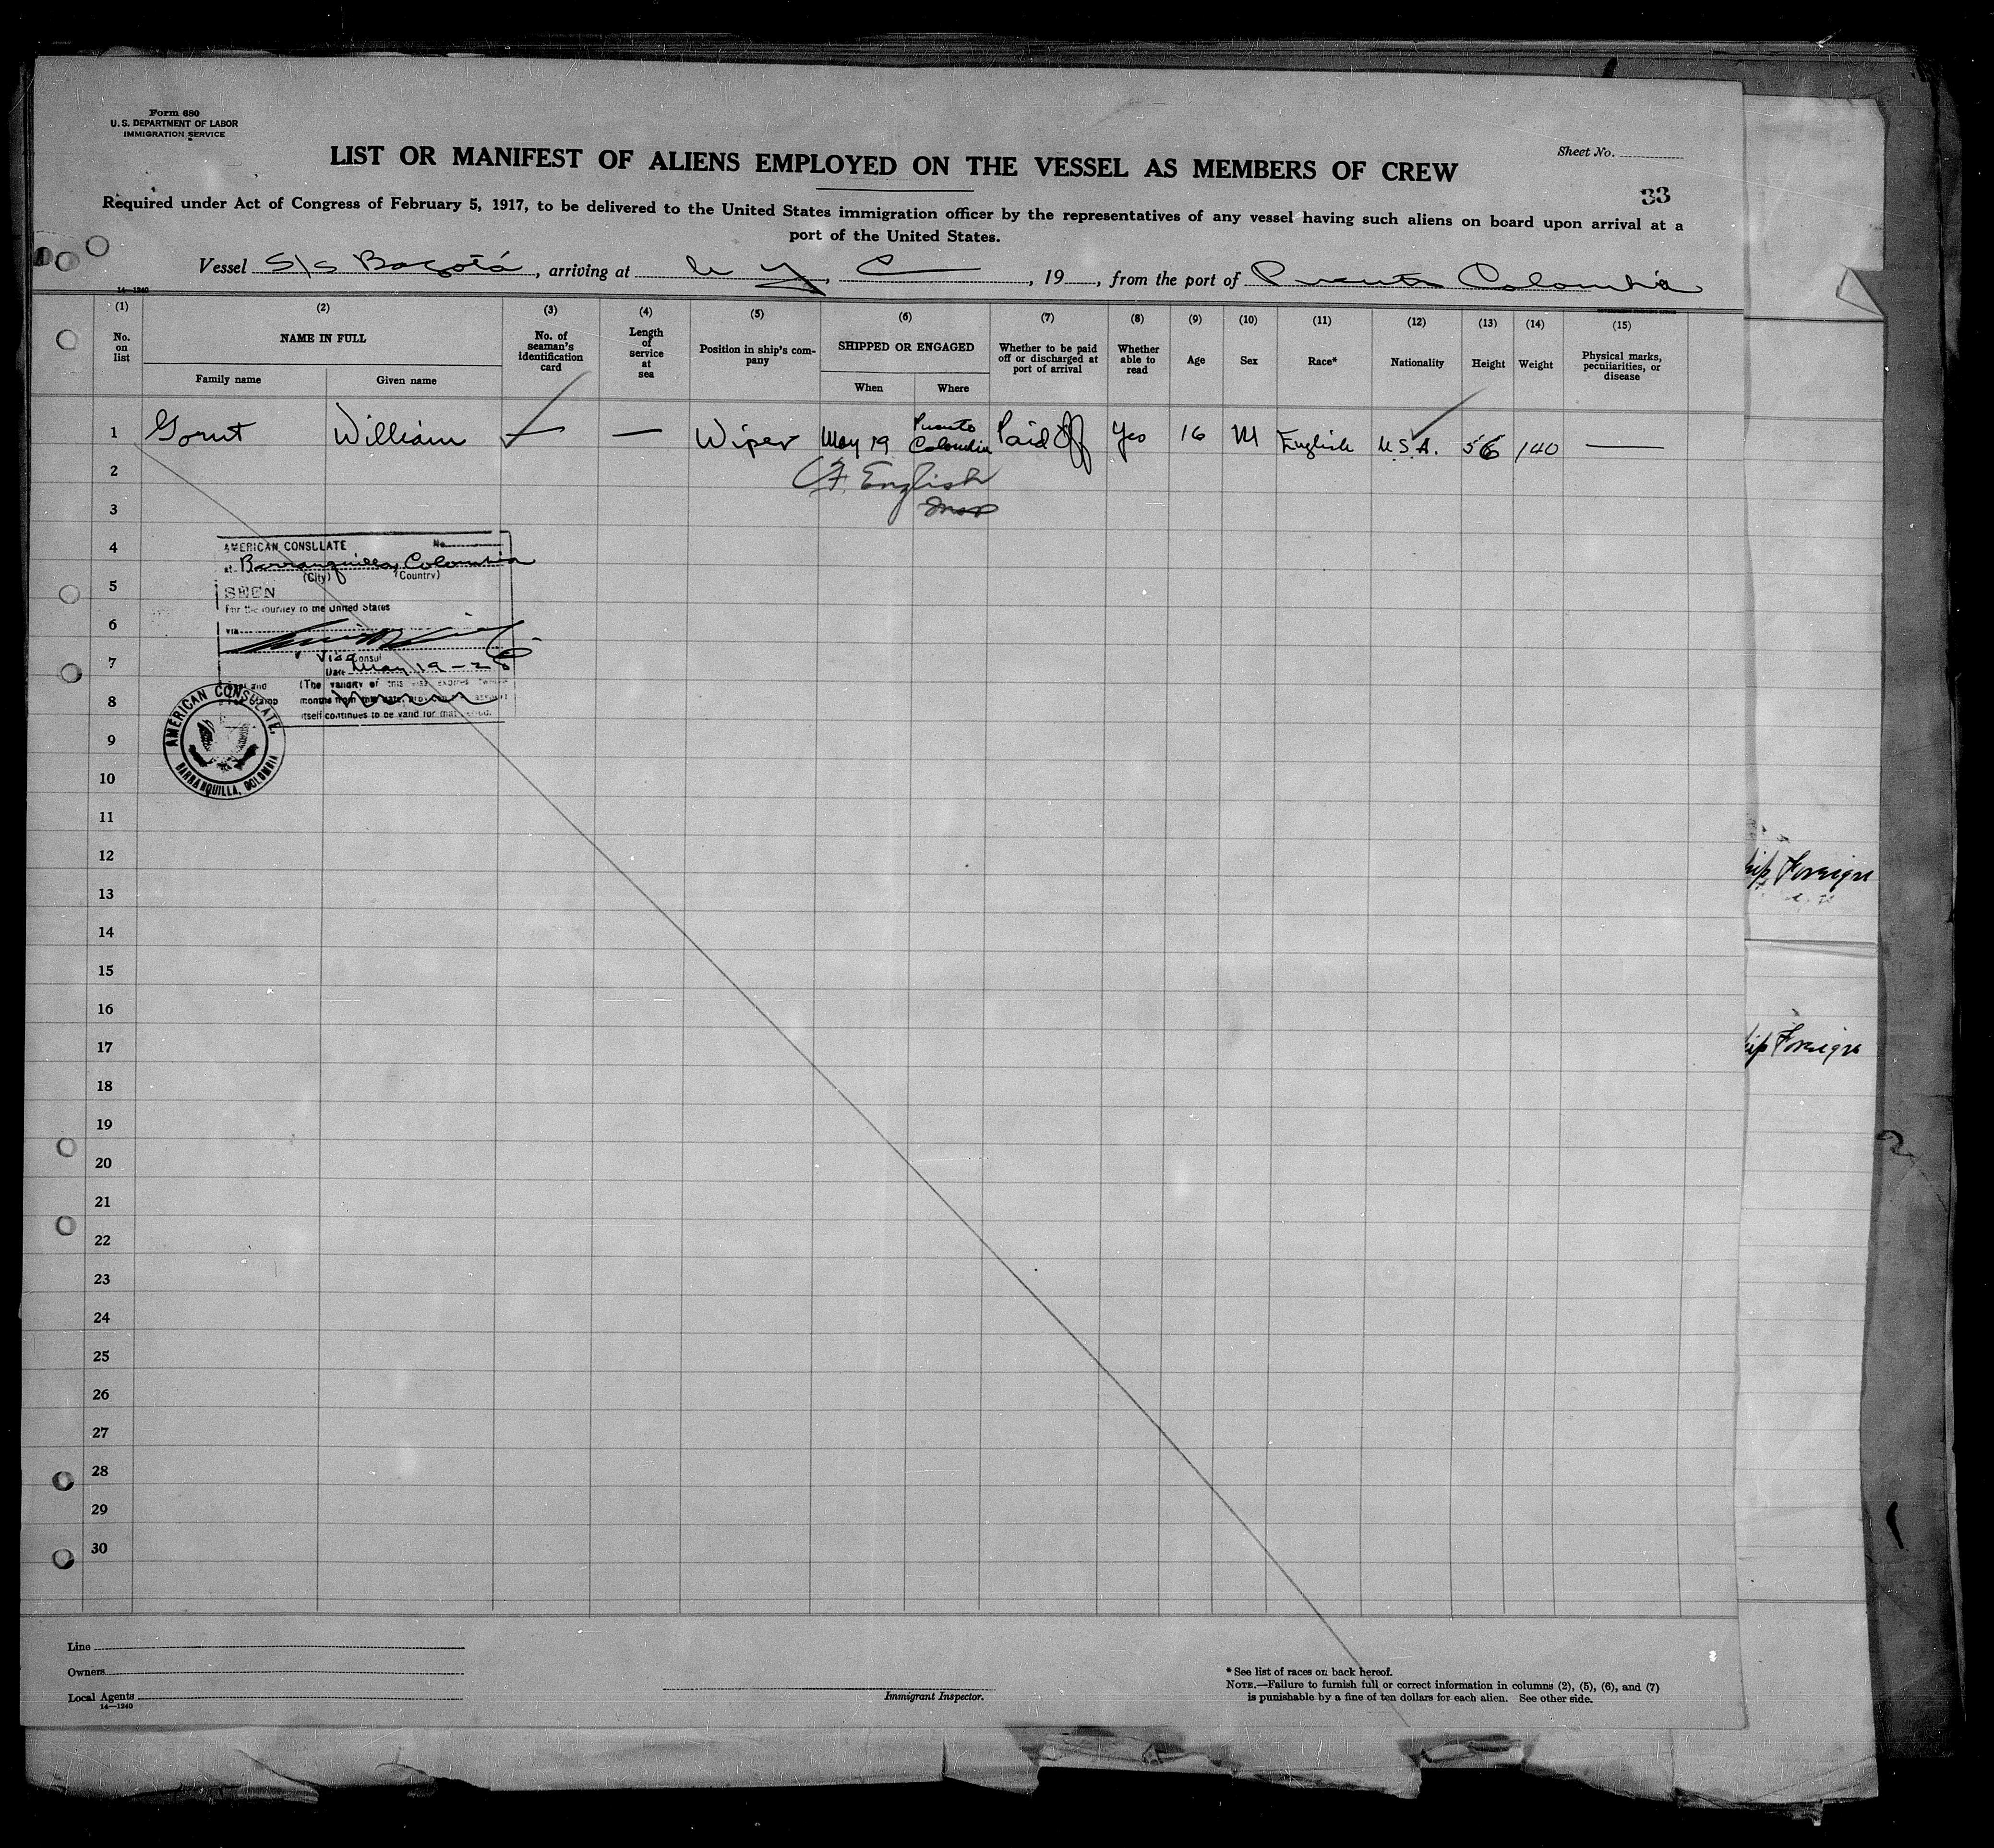 Form 680
U.S. DEPARTMENT OF LABOR
IMMIGRATION SERVICE
Sheet No.
LIST OR MANIFEST OF ALIENS EMPLOYED ON THE VESSEL AS MEMBERS OF CREW
33
Required under Act of Congress of February 5, 1917, to be delivered to the United States immigration officer by the representatives of any vessel having such aliens on board upon arrival at a
port of the United States.
Vessel S/S Bogotá, arriving at N Y C, 19, from the port of Puerto Colombia
14—1240
(1) (2) (3) (4) (5) (6) (7) (8) (9) (10) (11) (12) (13) (14) (15)
No. on list
NAME IN FULL
Family name
Given name
No. of seaman's identification card
Length of service at sea
Position in ship's company
SHIPPED OR ENGAGED
When
Where
Whether to be paid off or discharged at port of arrival
Whether able to read
Age
Sex
Race*
Nationality
Height
Weight
Physical marks, peculiarities, or disease
1 William — — Wiper May 19 Puerto Colombia Paid Off Yes 16 M English U.S.A. 56 140 —
2 English
3
4
AMERICAN CONSULATE No.
at Barranquilla, Colombia
(City) (Country)
5
SEEN
For the journey to the United States
6
via
7
Vice Consul
Date May 19-28
(The validity of this visa expires twelve
8
months from this date, provided the passport
itself continues to be valid for that period.
AMERICAN CONSULATE,
BARRANQUILLA, COLOMBIA
9
10
11
12
13
14
15
16
17
18
19
20
21
22
23
24
25
26
27
28
29
30
ip Foreign
ip Foreign
Line
Owners
Local Agents
14—1240
Immigrant Inspector.
* See list of races on back hereof.
NOTE.—Failure to furnish full or correct information in columns (2), (5), (6), and (7)
is punishable by a fine of ten dollars for each alien. See other side.